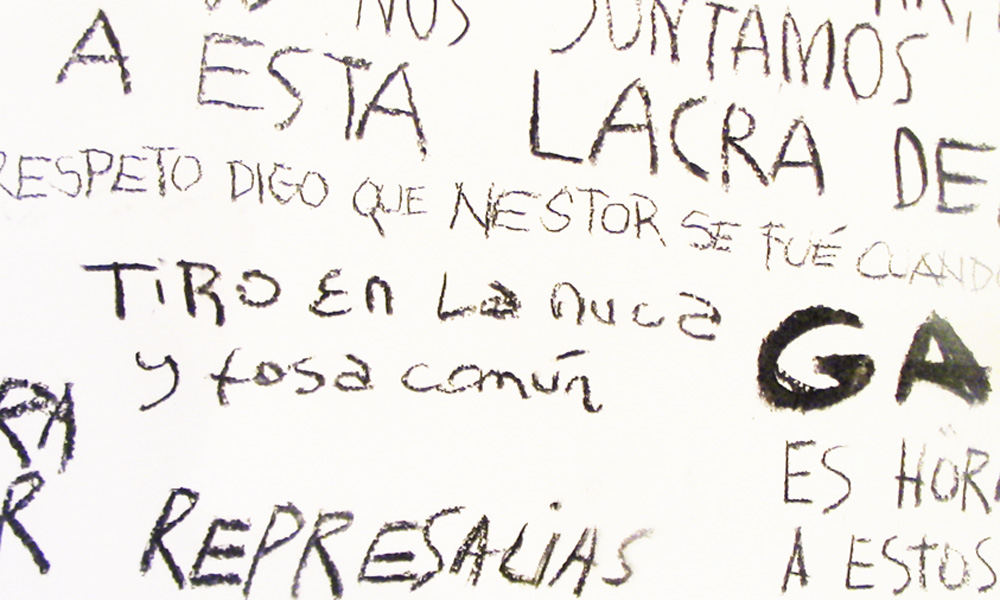 NOS JUNTAMOS
A ESTA LACRA DE
RESPETO DIGO QUE NESTOR SE FUÉ CUANDO
TiRO En La nuca
y fosa común
GA
ES HORA
R REPRESALiAS
A ESTOS